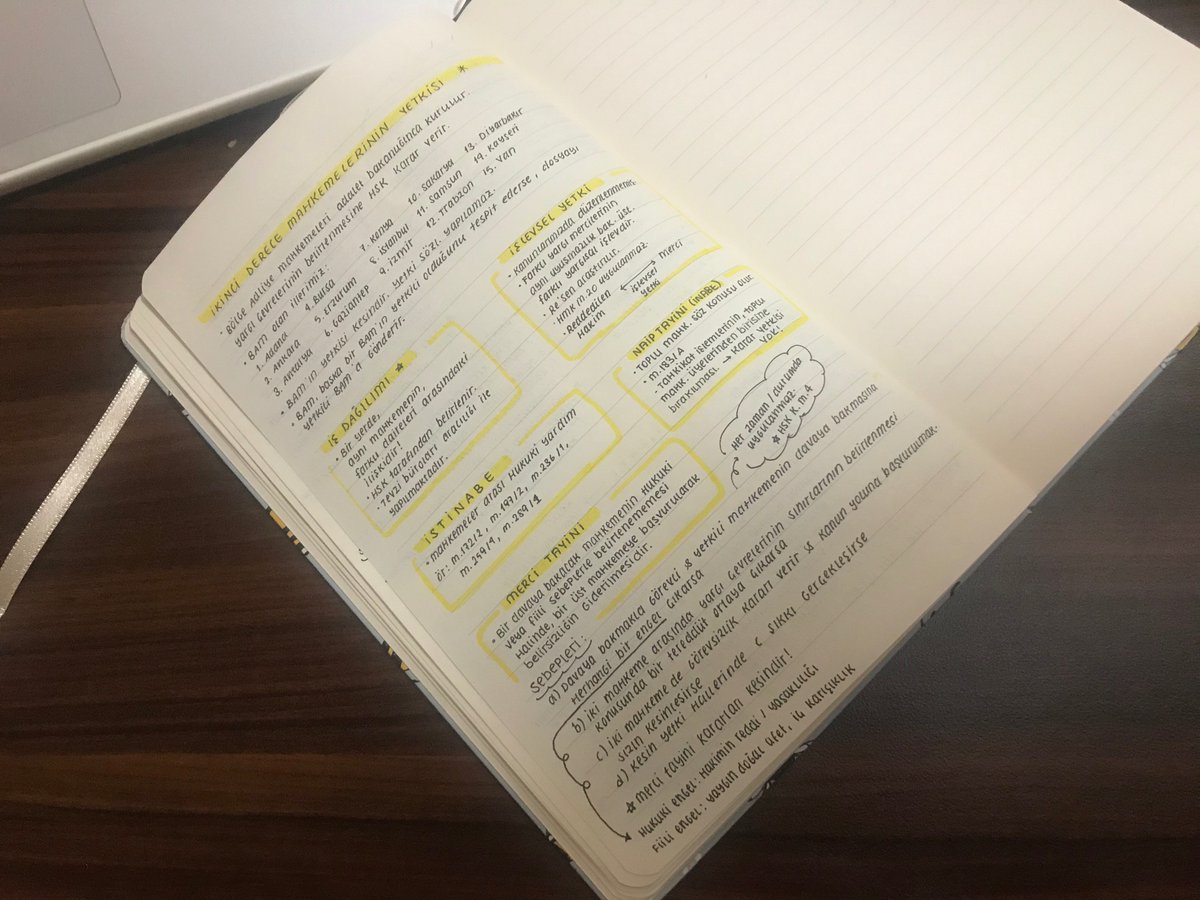 İKİNCİ DERECE MAHKEMELERİNİN YETKİSİ *
• Bölge Adliye mahkemeleri adalet bakanlığınca kurulur.
yargı çevrelerinin belirlenmesine HSK karar verir.
• BAM olan illerimiz:
1. Adana 4. Bursa 7. Konya 10. Sakarya 13. Diyarbakır
2. Ankara 5. Erzurum 8. İstanbul 11. Samsun 14. Kayseri
3. Antalya 6. Gaziantep 9. İzmir 12. Trabzon 15. Van
• BAM'ın yetkisi kesindir. Yetki sözl. yapılamaz.
• BAM, başka bir BAM'ın yetkili olduğunu tespit ederse, dosyayı
yetkili BAM'a gönderir.
İŞ DAĞILIMI *
• Bir yerde,
aynı mahkemenin,
farklı daireleri arasındaki
ilişkidir.
• HSK tarafından belirlenir.
• Tevzi büroları aracılığı ile
yapılmaktadır.
İŞLEVSEL YETKİ
• Kanunlarımızda düzenlenmemiş.
• Farklı yargı mercilerinin
aynı uyuşmazlık bak. üst.
farklı yargısal işlevdir.
• Re'sen araştırılır.
• HMK m.20 uygulanmaz.
• Reddedilen Hakim ↔ işlevsel yetki merci
İSTİNABE
• Mahkemeler arası Hukuki yardım
ör: m.172/2, m.197/2, m.236/1,
m.259/4, m.289/1
NAİP TAYİNİ (İNABE)
Toplu mahk. söz konusu olur
• m.183/A
Tahkikat işlemlerinin, toplu
mahk. üyelerinden birisine
bırakılması. → Karar yetkisi
yok!
Her zaman / durumda
uygulanmaz.
* HSK K. m. 4
MERCİ TAYİNİ
• Bir davaya bakacak mahkemenin hukuki
veya fiili sebeplerle belirlenememesi
Halinde, bir üst mahkemeye başvurularak
belirsizliğin giderilmesidir.
Sebepleri:
a) Davaya bakmakla görevli & yetkili mahkemenin davaya bakmasına
Herhangi bir engel çıkarsa
b) İki mahkeme arasında yargı çevrelerinin sınırlarının belirlenmesi
konusunda bir tereddüt ortaya çıkarsa
c) İki mahkeme de görevsizlik kararı verir & kanun yoluna başvurulmak-
sızın kesinleşirse
d) Kesin yetki Hallerinde c şıkkı gerçekleşirse
* Merci tayini kararları kesindir!
Hukuki engel: Hakimin reddi / yasaklılığı
Fiili engel: yaygın doğal afet, iç karışıklık